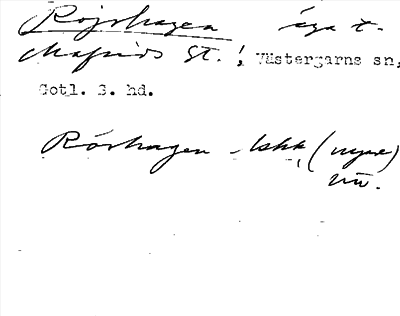 Röjshagen äga t.
Mafrids St. !, Västergarns sn,
Gotl. S. hd.
Rörhagen - Lskk, (nyare)